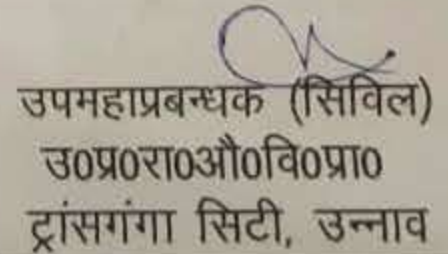 उपमहाप्रबन्धक (सिविल)
उ०प्र०रा०औ०वि०प्रा०
ट्रांसगंगा सिटी, उन्नाव